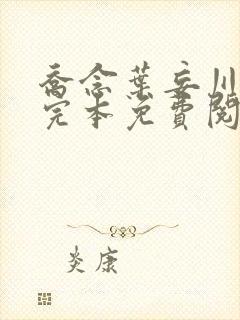 喬念葉妄川
完本免費閱
炎康